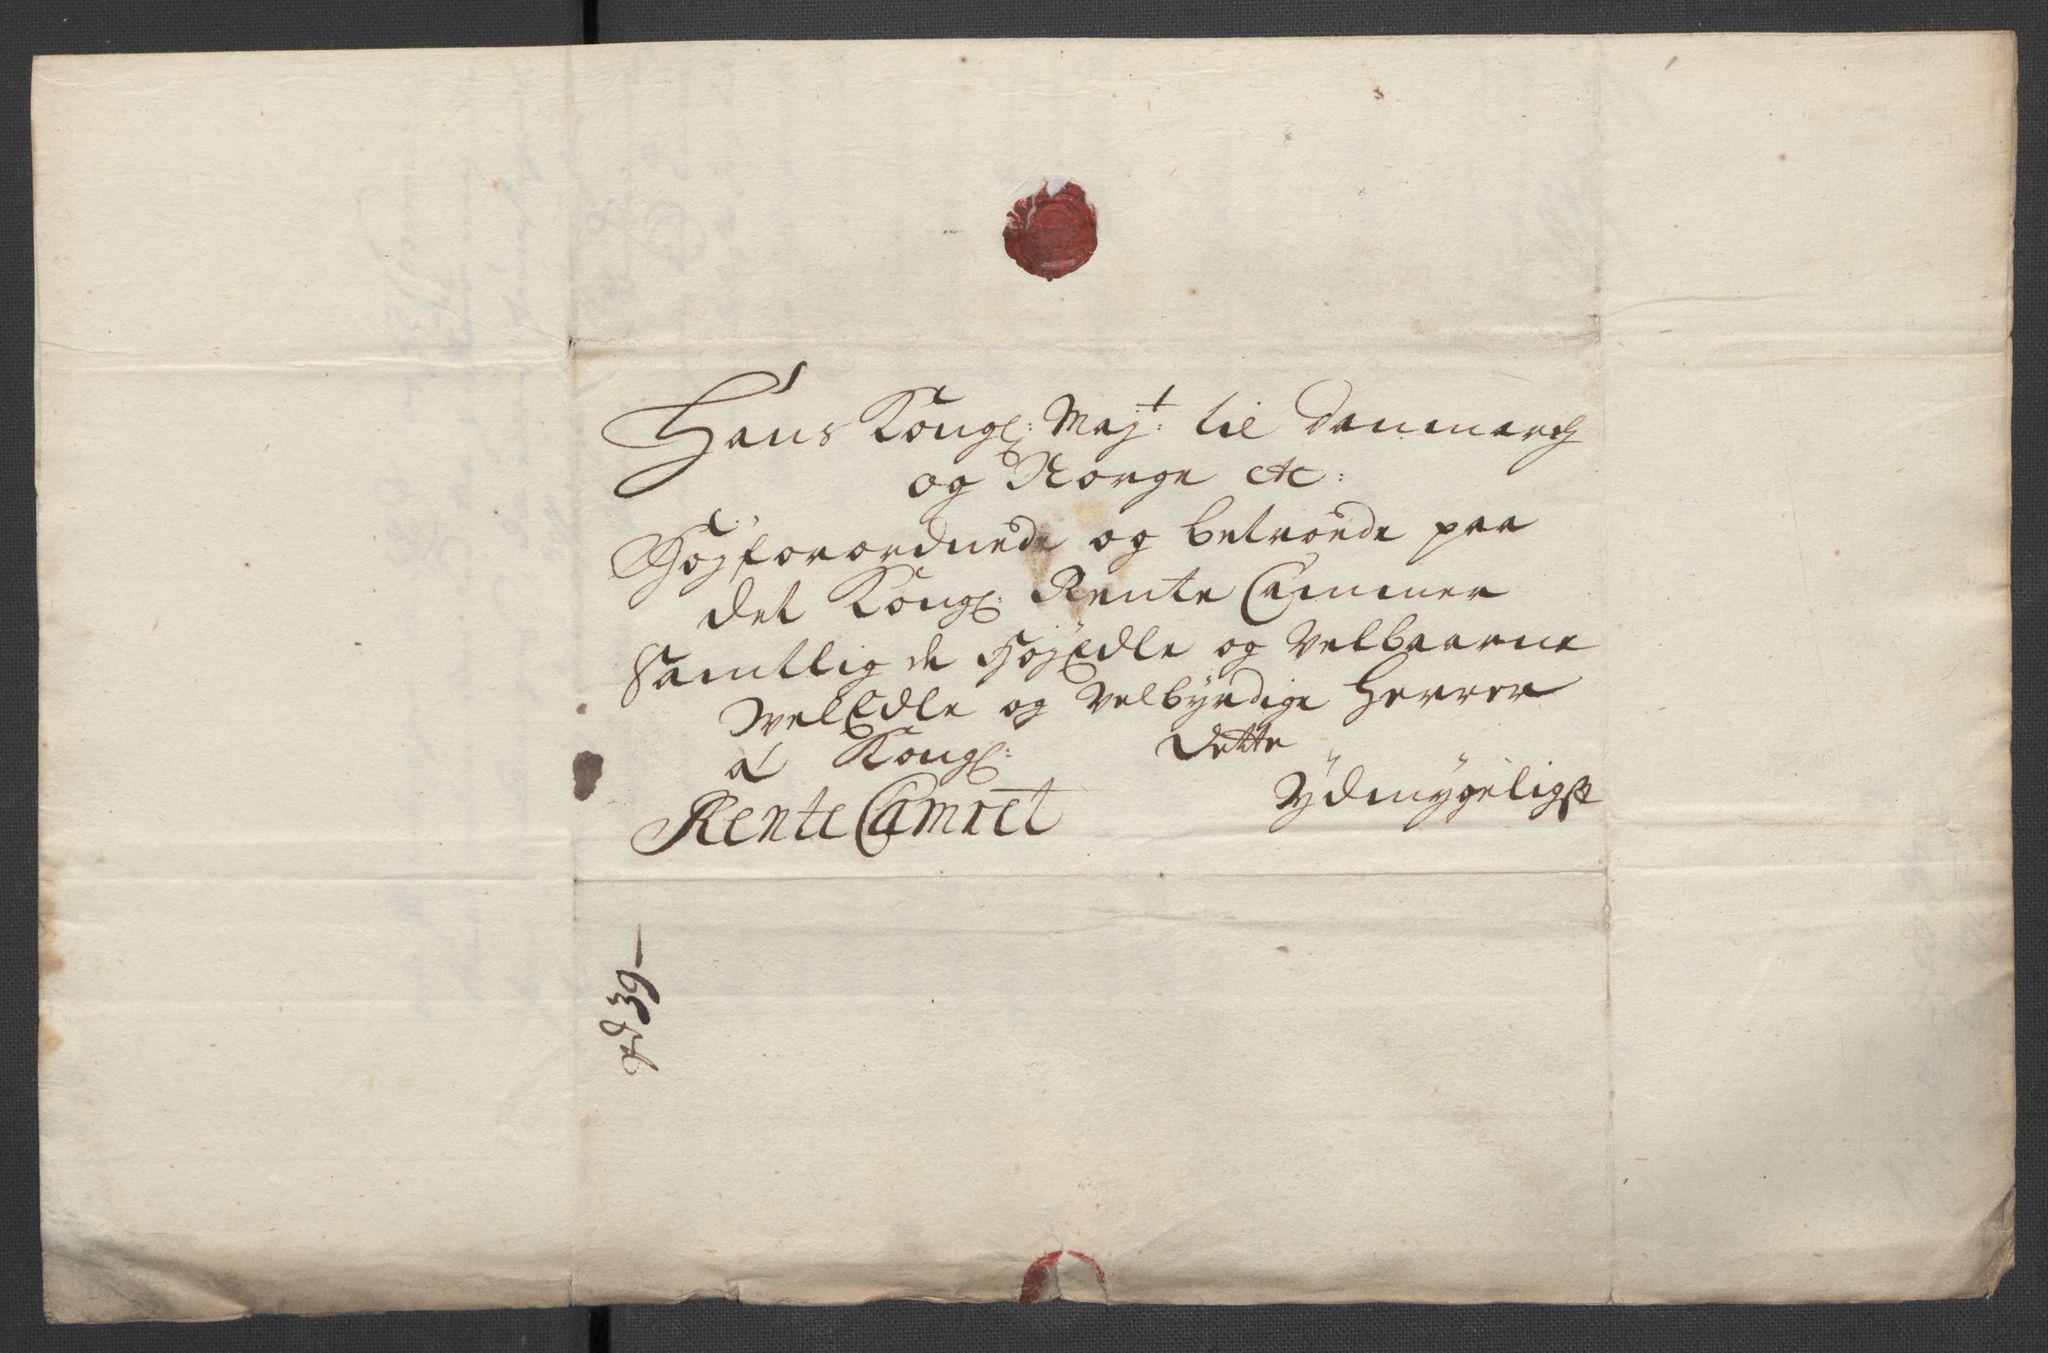 Hans Kongl: Majt: til Danmarch
og Norge etc:
Højforordnede og betroede paa
det Kongl: Rente Cammer
Samtlig de HøjEdle og Velbaarne
WelEdle og Velbyrdige Herrer
a Kongl: Dette
RenteCamret Ydmygeligst